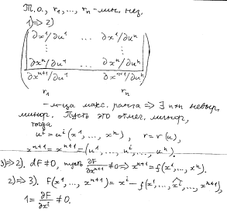 Т.о., r₁, ..., rₙ - лин. нез.
1)⇒2)
∂x¹/∂u¹ ... ∂x¹/∂uⁿ
∂xⁿ/∂u¹ ... ∂xⁿ/∂uⁿ
∂xⁿ⁺¹/∂u¹ ∂xⁿ⁺¹/∂uⁿ
r₁ rₙ
- м-ца макс. ранга ⇒ ∃ n×n невыр.
минор. Пусть это отмеч. минор,
тогда
uⁱ = uⁱ(x¹, ..., xⁿ), r = r(u),
xⁿ⁺¹ = xⁿ⁺¹(u¹, ..., uⁱ, ..., uⁿ).
3)⇒2). dF≠0, пусть ∂F/∂xⁿ⁺¹ ≠0 ⇒ xⁿ⁺¹=f(x¹, ..., xⁿ).
2)⇒3). F(x¹, ..., xⁿ⁺¹) = xⁱ - f(x¹, ..., x̂ⁱ, ..., xⁿ⁺¹),
1 = ∂F/∂xⁱ ≠ 0.